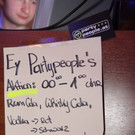 party
people.at
Ey Partypeople's
Aktion: 00⁰⁰ - 1⁰⁰ Uhr
Rum Cola, Whisky Cola,
Vodka →